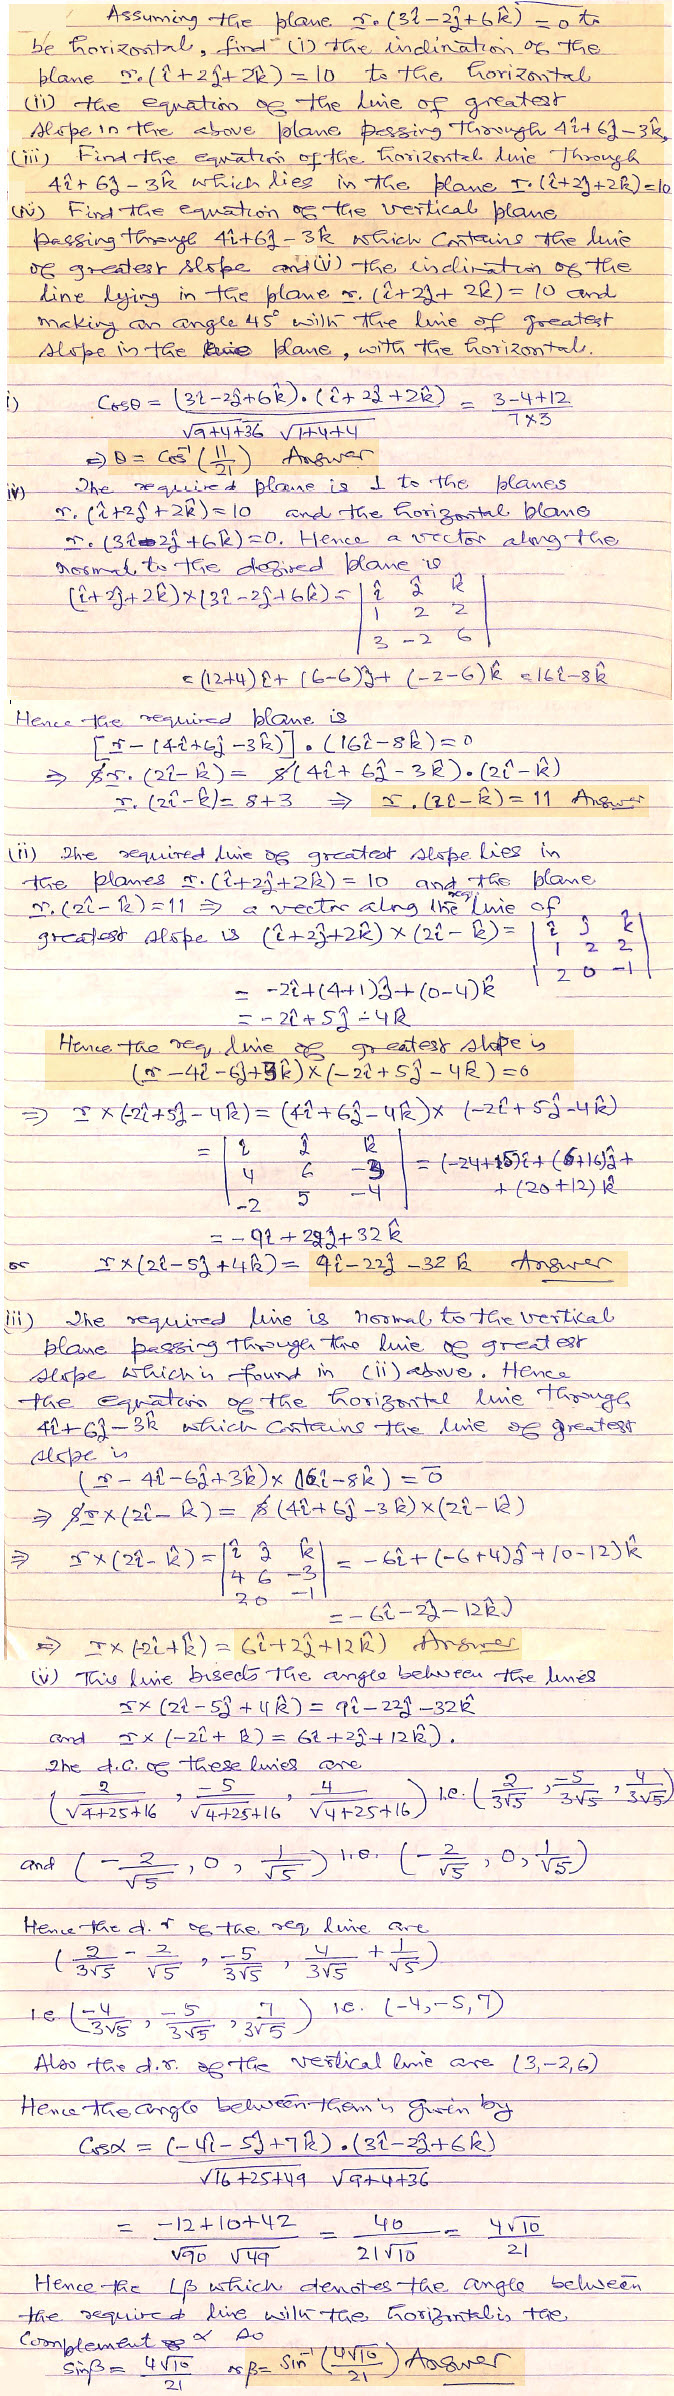 Assuming the plane r.(3î-2ĵ+6k̂)=0 to
be horizontal, find (i) the inclination of the
plane r.(î+2ĵ+2k̂)=10 to the horizontal
(ii) the equation of the line of greatest
slope in the above plane passing through 4î+6ĵ-3k̂,
(iii) Find the equation of the horizontal line through
4î+6ĵ-3k̂ which lies in the plane r.(î+2ĵ+2k̂)=10
(iv) Find the equation of the vertical plane
passing through 4î+6ĵ-3k̂ which contains the line
of greatest slope and (v) the inclination of the
line lying in the plane r.(î+2ĵ+2k̂)=10 and
making an angle 45° with the line of greatest
slope in the plane, with the horizontal.
i) Cosθ = (3î-2ĵ+6k̂).(î+2ĵ+2k̂) / √9+4+36 √1+4+4 = 3-4+12 / 7×3
⇒ θ = Cos⁻¹(11/21) Answer
iv) The required plane is ⊥ to the planes
r.(î+2ĵ+2k̂)=10 and the horizontal plane
r.(3î-2ĵ+6k̂)=0. Hence a vector along the
normal to the desired plane is
(î+2ĵ+2k̂)×(3î-2ĵ+6k̂) = | î ĵ k̂
1 2 2
3 -2 6 |
= (12+4)î+(6-6)ĵ+(-2-6)k̂ = 16î-8k̂
Hence the required plane is
[r-(4î+6ĵ-3k̂)].(16î-8k̂)=0
⇒ 8r.(2î-k̂) = 8(4î+6ĵ-3k̂).(2î-k̂)
r.(2î-k̂) = 8+3 ⇒ r.(2î-k̂)=11 Answer
(ii) The required line of greatest slope lies in
the planes r.(î+2ĵ+2k̂)=10 and the plane
r.(2î-k̂)=11 ⇒ a vector along the req. line of
greatest slope is (î+2ĵ+2k̂)×(2î-k̂) = | î ĵ k̂
1 2 2
2 0 -1 |
= -2î+(4+1)ĵ+(0-4)k̂
= -2î+5ĵ-4k̂
Hence the req. line of greatest slope is
(r-4î-6ĵ+3k̂)×(-2î+5ĵ-4k̂)=0
⇒ r×(-2î+5ĵ-4k̂) = (4î+6ĵ-4k̂)×(-2î+5ĵ-4k̂)
= | î ĵ k̂
4 6 -3
-2 5 -4 | = (-24+15)î+(6+16)ĵ+
+(20+12)k̂
= -9î+22ĵ+32k̂
or r×(2î-5ĵ+4k̂) = 9î-22ĵ-32k̂ Answer
iii) The required line is normal to the vertical
plane passing through the line of greatest
slope which is found in (ii) above. Hence
the equation of the horizontal line through
4î+6ĵ-3k̂ which contains the line of greatest
slope is
(r-4î-6ĵ+3k̂)×(16î-8k̂)=0̄
⇒ 8r×(2î-k̂) = 8(4î+6ĵ-3k̂)×(2î-k̂)
⇒ r×(2î-k̂) = | î ĵ k̂
4 6 -3
2 0 -1 | = -6î+(-6+4)ĵ+(0-12)k̂
= -6î-2ĵ-12k̂)
⇒ r×(-2î+k̂) = 6î+2ĵ+12k̂) Answer
(v) This line bisects the angle between the lines
r×(2î-5ĵ+4k̂) = 9î-22ĵ-32k̂
and r×(-2î+k̂) = 6î+2ĵ+12k̂).
The d.c. of these lines are
(2/√4+25+16, -5/√4+25+16, 4/√4+25+16) i.e. (2/3√5, -5/3√5, 4/3√5)
and (-2/√5, 0, 1/√5) i.e. (-2/√5, 0, 1/√5)
Hence the d.r of the req line are
(2/3√5 - 2/√5, -5/3√5, 4/3√5 + 1/√5)
i.e. (-4/3√5, -5/3√5, 7/3√5) i.e. (-4,-5,7)
Also the d.r. of the vertical line are (3,-2,6)
Hence the angle between them is given by
Cosα = (-4î-5ĵ+7k̂).(3î-2ĵ+6k̂) / √16+25+49 √9+4+36
= -12+10+42 / √90 √49 = 40 / 21√10 = 4√10 / 21
Hence the ∠β which denotes the angle between
the required line with the horizontal is the
Complement of α so
sinβ = 4√10/21 or β = Sin⁻¹(4√10/21) Answer